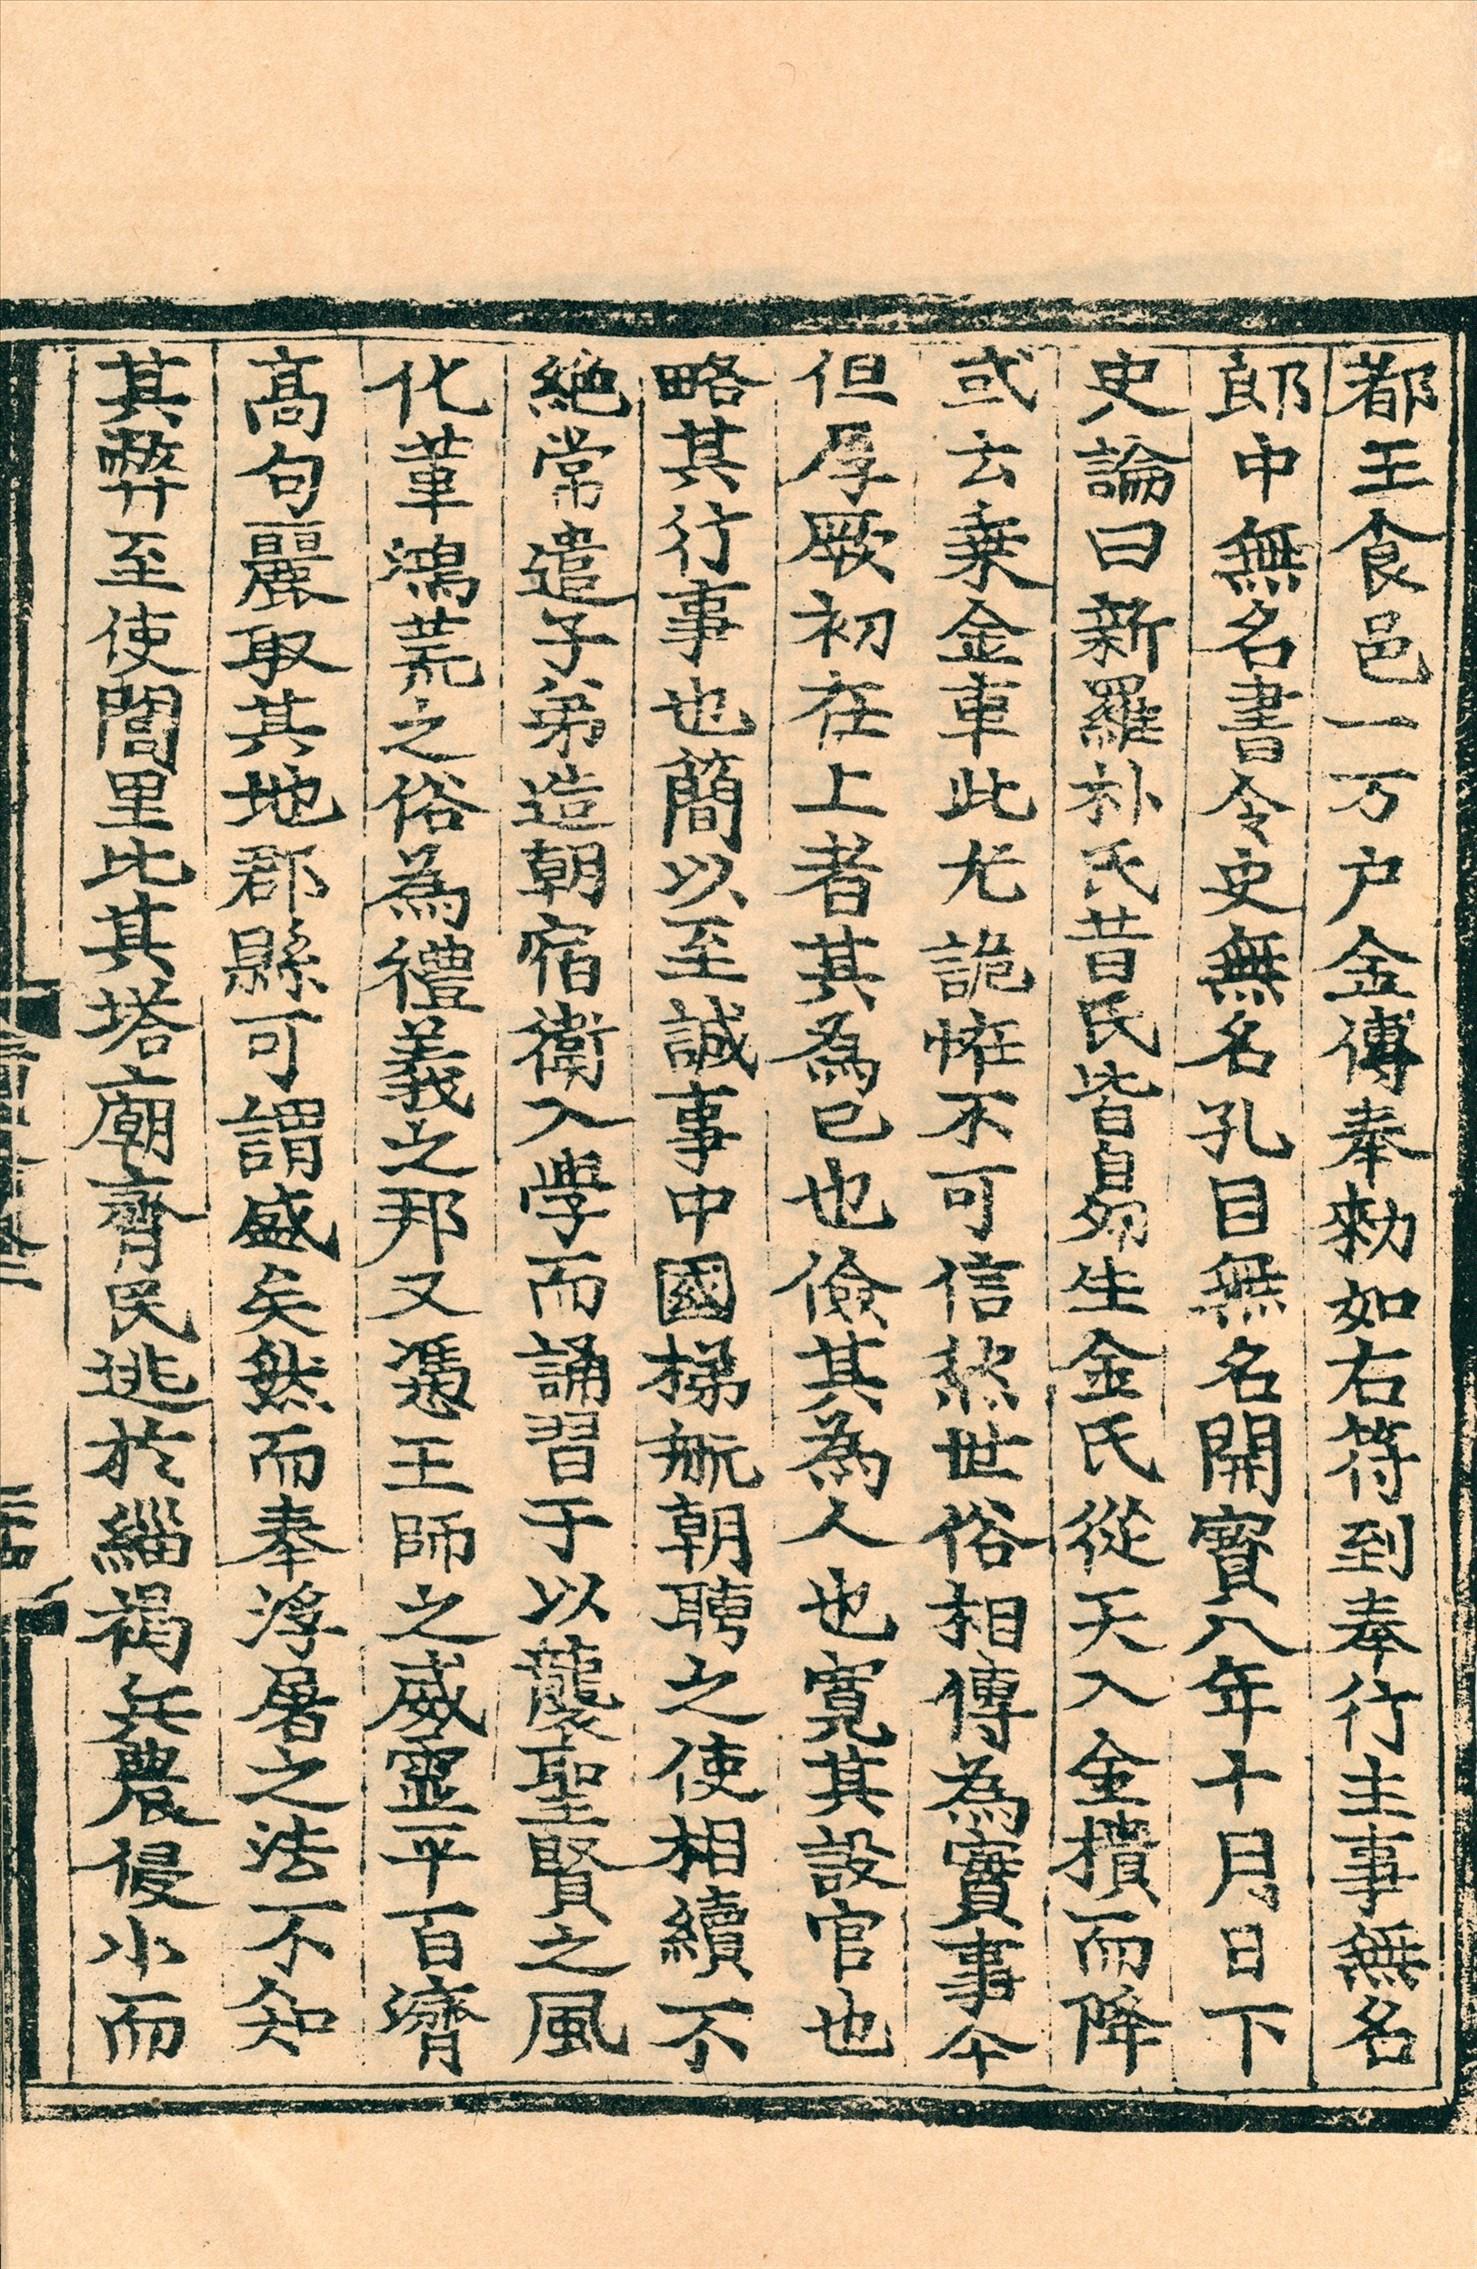 都王食邑一万户金傅奉勑如右符到奉行主事無名
郎中無名書令史無名孔目無名開寶八年十月日下
史論曰新羅朴氏昔氏皆自夘生金氏從天入金樻而降
或云乗金車此尤詭恠不可信然世俗相傳為實事今
但厚厥初在上者其爲己也儉其為人也寛其設官也
略其行事也簡以至誠事中國梯航朝聘之使相續不
絶常遣子弟造朝宿衛入學而誦習于以襲聖賢之風
化革鴻荒之俗為禮義之邦又憑王師之威靈平百濟
髙句麗取其地郡縣可謂盛矣然而奉浮屠之法不知
其弊至使閭里比其塔廟齊民逃於緇褐兵農侵小而